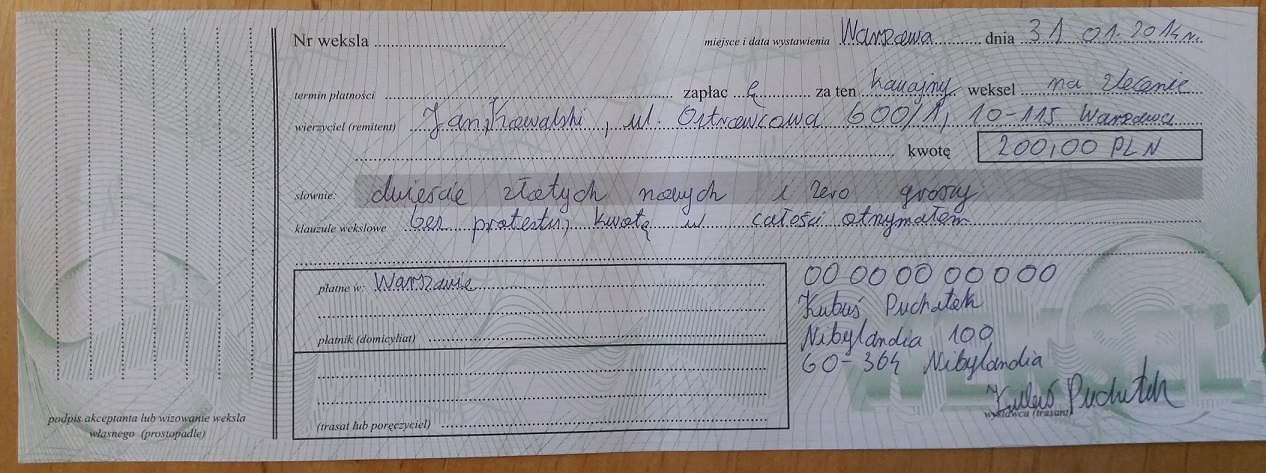 Nr weksla
miejsce i data wystawienia Warszawa dnia 31 01. 2014 r.
termin płatności zapłac ę za ten krajowy weksel na zlecenie
wierzyciel (remitent) Jan Kowalski, ul. Ostrowcowa 600/1, 10-115 Warszawa
kwotę 200,00 PLN
słownie: dwieście złotych nowych i zero groszy
klauzule wekslowe bez protestu, kwotę w całości otrzymałem
płatne w: Warszawie
płatnik (domicyliat)
(trasat lub poręczyciel)
00 00 00 00 000
Kubuś Puchatek
Nibylandia 100
60-364 Nibylandia
Kubuś Puchatek
wystawca (trasant)
podpis akceptanta lub wizowanie weksla
własnego (prostopadle)